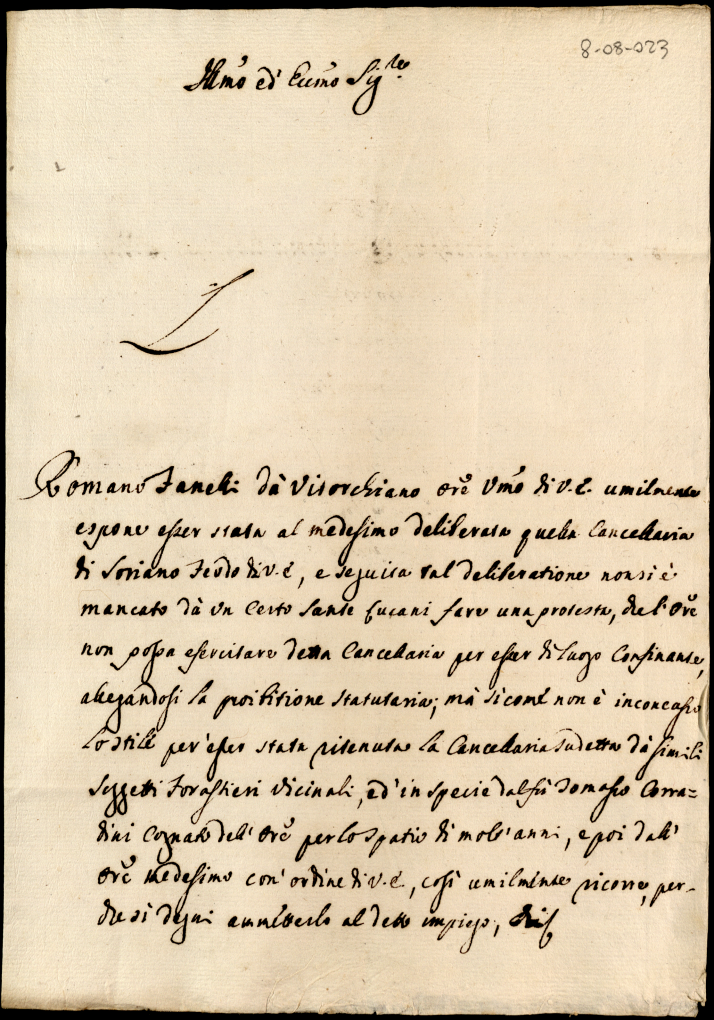 8-08-023
Illmo ed' Eccmo Sigre
Romano Zanelli dà Vitorchiano Orē Umō di V.E. umilmente
espone esser stata al medesimo deliberata quella Cancellaria
di Soriano Feudo di V.E, e seguita tal deliberatione non si è
mancato dà un Certo Sante Lucani fare una protesta, che l'Orē
non possa esercitare detta Cancellaria per esser di luogo Confinante,
allegandosi la proibitione statutaria; mà sicome non è inconcusso
lo stile per esser stata ritenuta la Cancellaria sudetta dà simili
soggetti Forastieri vicinali, ed' in specie dal fù Tomasso Corra=
dini Cognato dell'Orē per lo spatio di molt'anni, e poi dall'
Orē medesimo con' ordine di V.E, così umilmente ricorre, per-
che si degni ammetterlo al detto impiego,